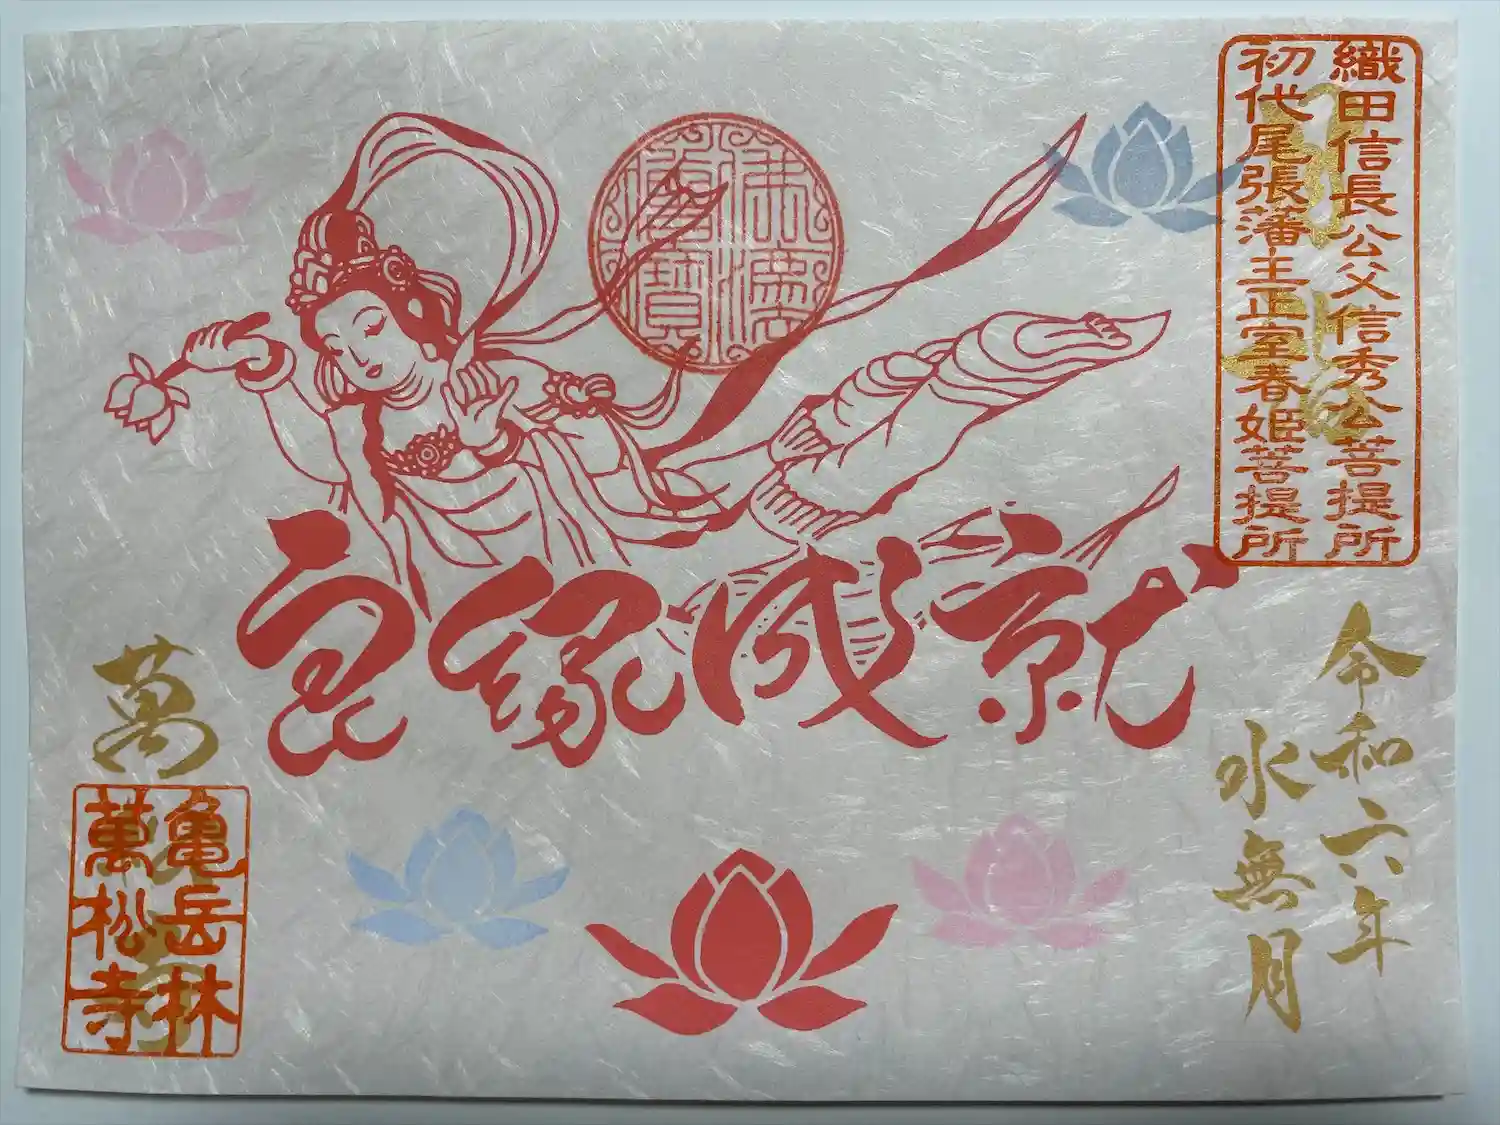 織田信長公父信秀公菩提所
初代尾張藩主正室春姫菩提所
奉拝
令和六年
水無月
佛法僧寶
良縁成就
萬松寺
亀岳林
萬松寺